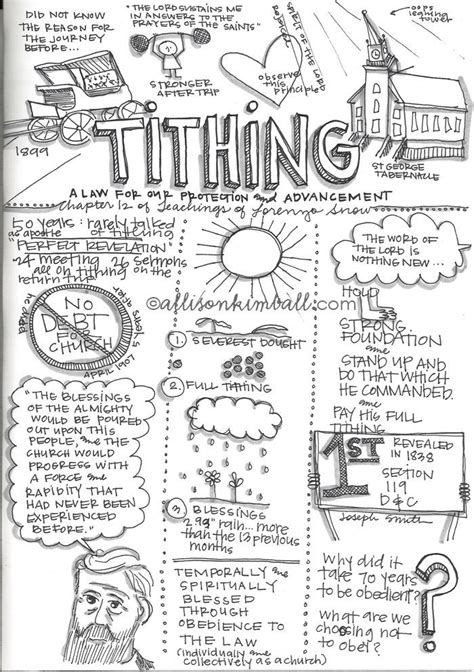 DID NOT KNOW
THE REASON FOR
THE JOURNEY
BEFORE...
1899
"THE LORD SUSTAINS ME
IN ANSWERS TO THE
PRAYERS OF THE SAINTS"
STRONGER
AFTER TRIP
SPIRIT OF THE LORD
observe
this
principle
oops
leaning
tower
ST GEORGE
TABERNACLE
TITHING
A LAW FOR OUR PROTECTION and ADVANCEMENT
Chapter 12 of Teachings of Lorenzo Snow
50 years: rarely talked
as apostle of tithing
"PERFECT REVELATION"
24 meeting 26 sermons
all on tithing on the
return trip
NO
DEBT
CHURCH
APRIL 1907
"THE BLESSINGS
OF THE ALMIGHTY
WOULD BE POURED
OUT UPON THIS
PEOPLE, and THE
CHURCH WOULD
PROGRESS WITH
A FORCE and
RAPIDITY THAT
HAD NEVER BEEN
EXPERIENCED
BEFORE."
©allisonkimball.com
1. SEVEREST DOUGHT
2. FULL TITHING
3. BLESSINGS
2.93" rain... more
than the 13 previous
months
TEMPORALLY and
SPIRITUALLY
BLESSED
THROUGH
OBEDIENCE TO
THE LAW
(individually and
collectively as a church)
THE WORD OF
THE LORD IS
NOTHING NEW...
HOLD
STRONG
FOUNDATION
and
STAND UP AND
DO THAT WHICH
HE COMMANDED.
and
PAY HIS FULL
TITHING
1ST
REVEALED
IN 1838
SECTION
119
D&C
Joseph Smith
Why did it
take 70 years
to be obedient?
What are we
choosing not
to obey?
?